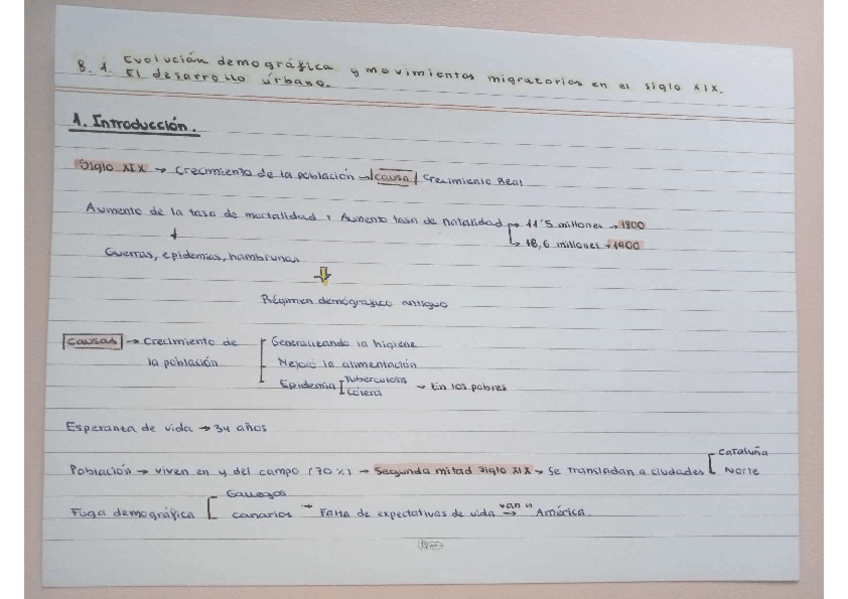 8.1. Evolución demográfica y movimientos migratorios en el siglo XIX.
El desarrollo urbano.
1. Introducción.
Siglo XIX → Crecimiento de la población → causa / Crecimiento Real
Aumento de la tasa de mortalidad y Aumento tasa de natalidad → 11'5 millones → 1800
↳ 18,6 millones → 1900
Guerras, epidemias, hambrunas
Régimen demográfico antiguo
Causas → Crecimiento de la población
Generalizando la higiene
Mejoró la alimentación
Epidemia [ Tuberculosis
Cólera → En los pobres
Esperanza de vida → 34 años
Población → viven en y del campo (70%) → Segunda mitad siglo XIX → Se transladan a ciudades [ Cataluña
Norte
Fuga demográfica [ Gallegos
canarios → Falta de expectativas de vida van a → América.